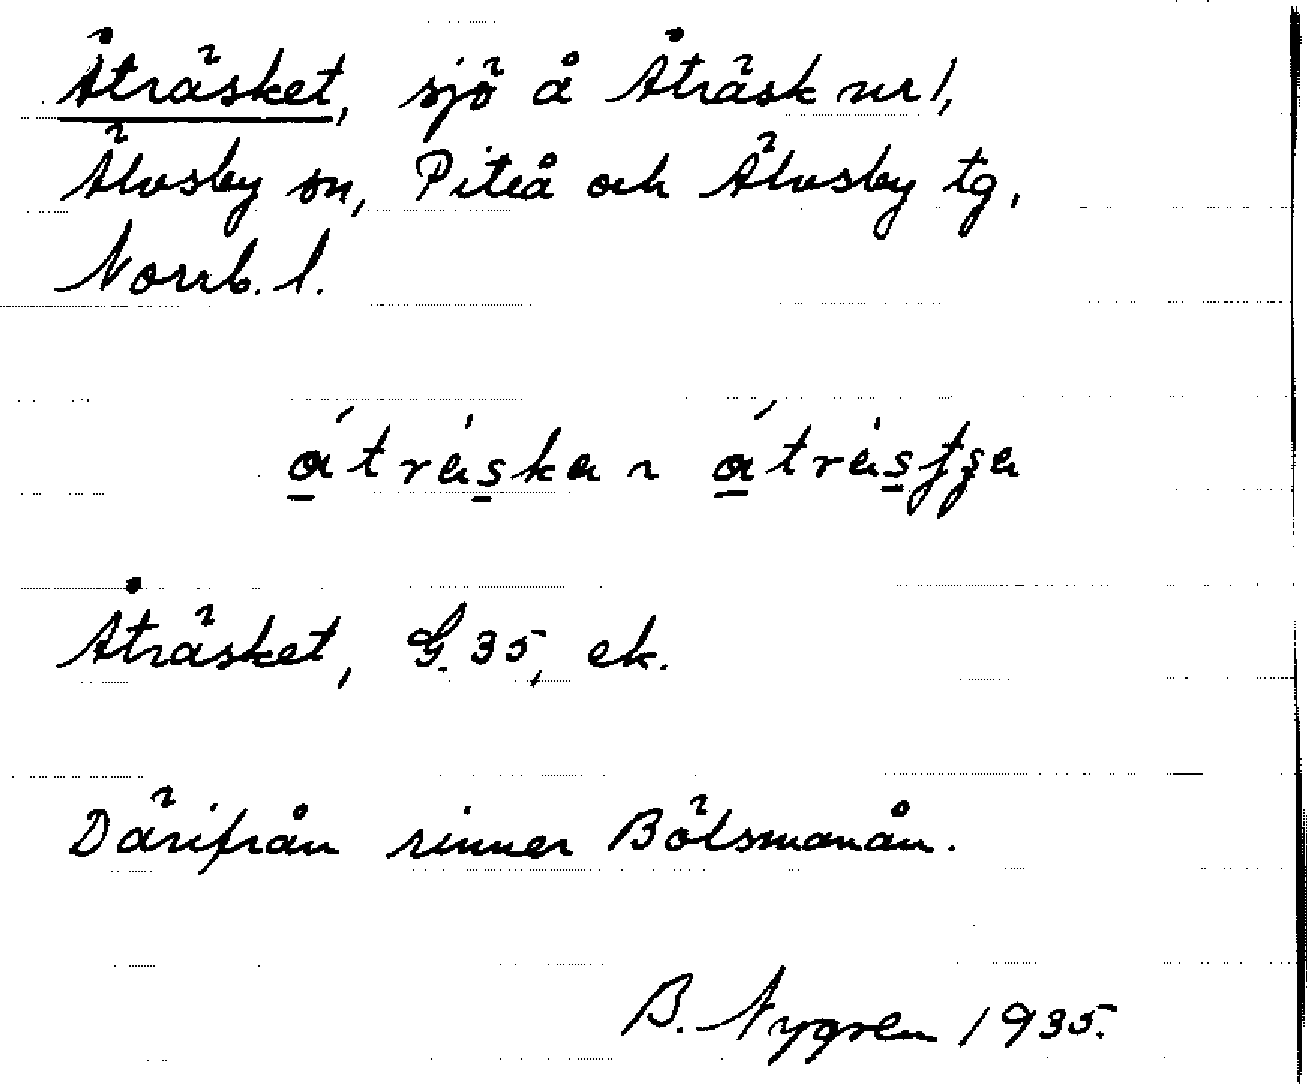 Åträsket, sjö å Åträsk nr 1,
Älvsby sn, Piteå och Älvsby tg,
Norrb. l.
åträska ~ åträstʃa
Åträsket, G. 35, ek.
Därifrån rinner Bölsmanån.
B. Nygren 1935.